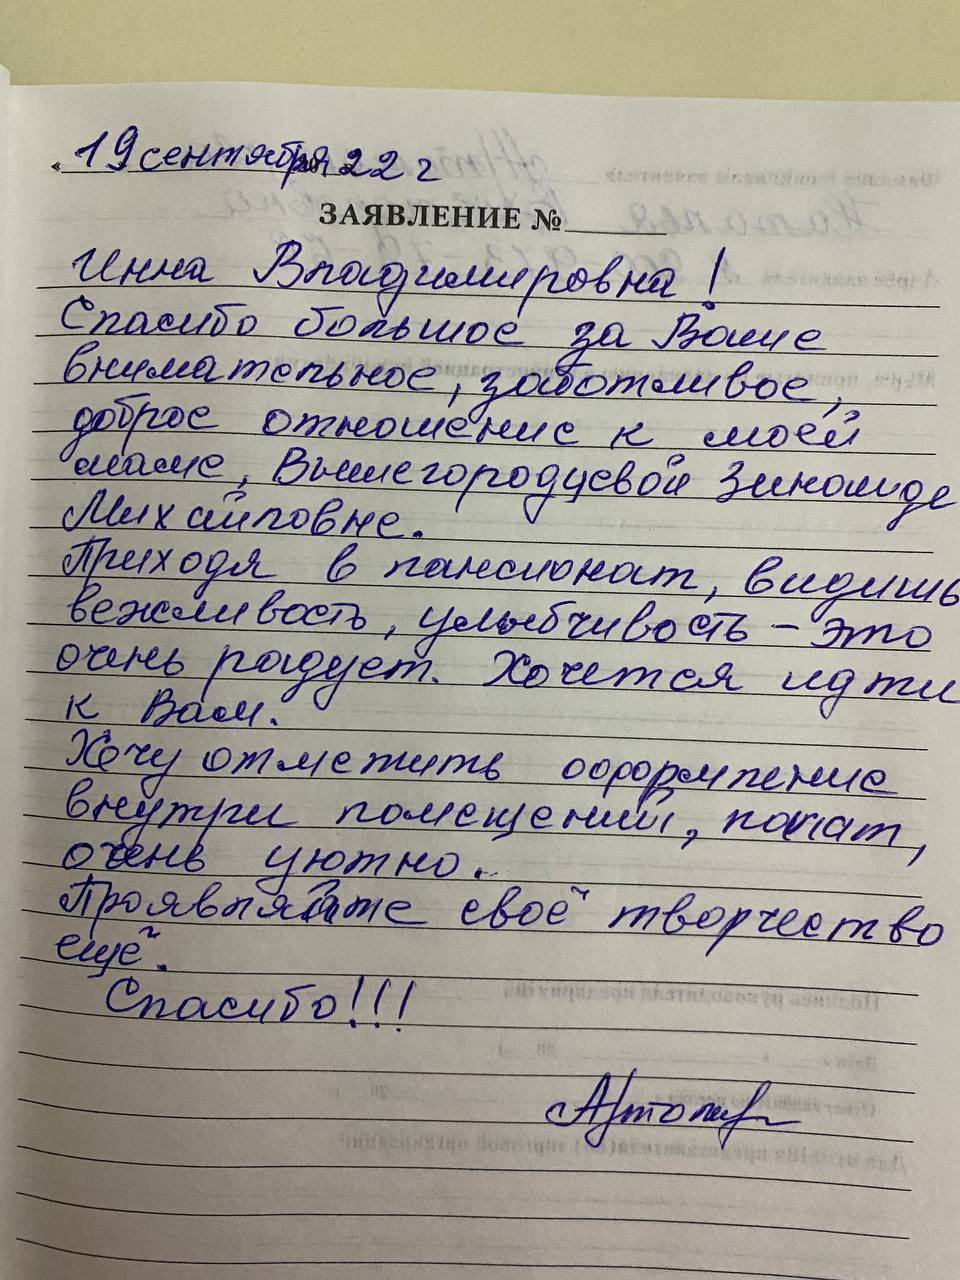 « 19 сентября 2022 г
ЗАЯВЛЕНИЕ №
Инна Владимировна!
Спасибо большое за Ваше
внимательное, заботливое,
доброе отношение к моей
маме, Вышегородцевой Зинаиде
Михайловне.
Приходя в пансионат, видишь
вежливость, улыбчивость – это
очень радует. Хочется идти
к Вам.
Хочу отметить оформление
внутри помещений, палат,
очень уютно.
Проявляйте своё творчество
ещё.
Спасибо!!!